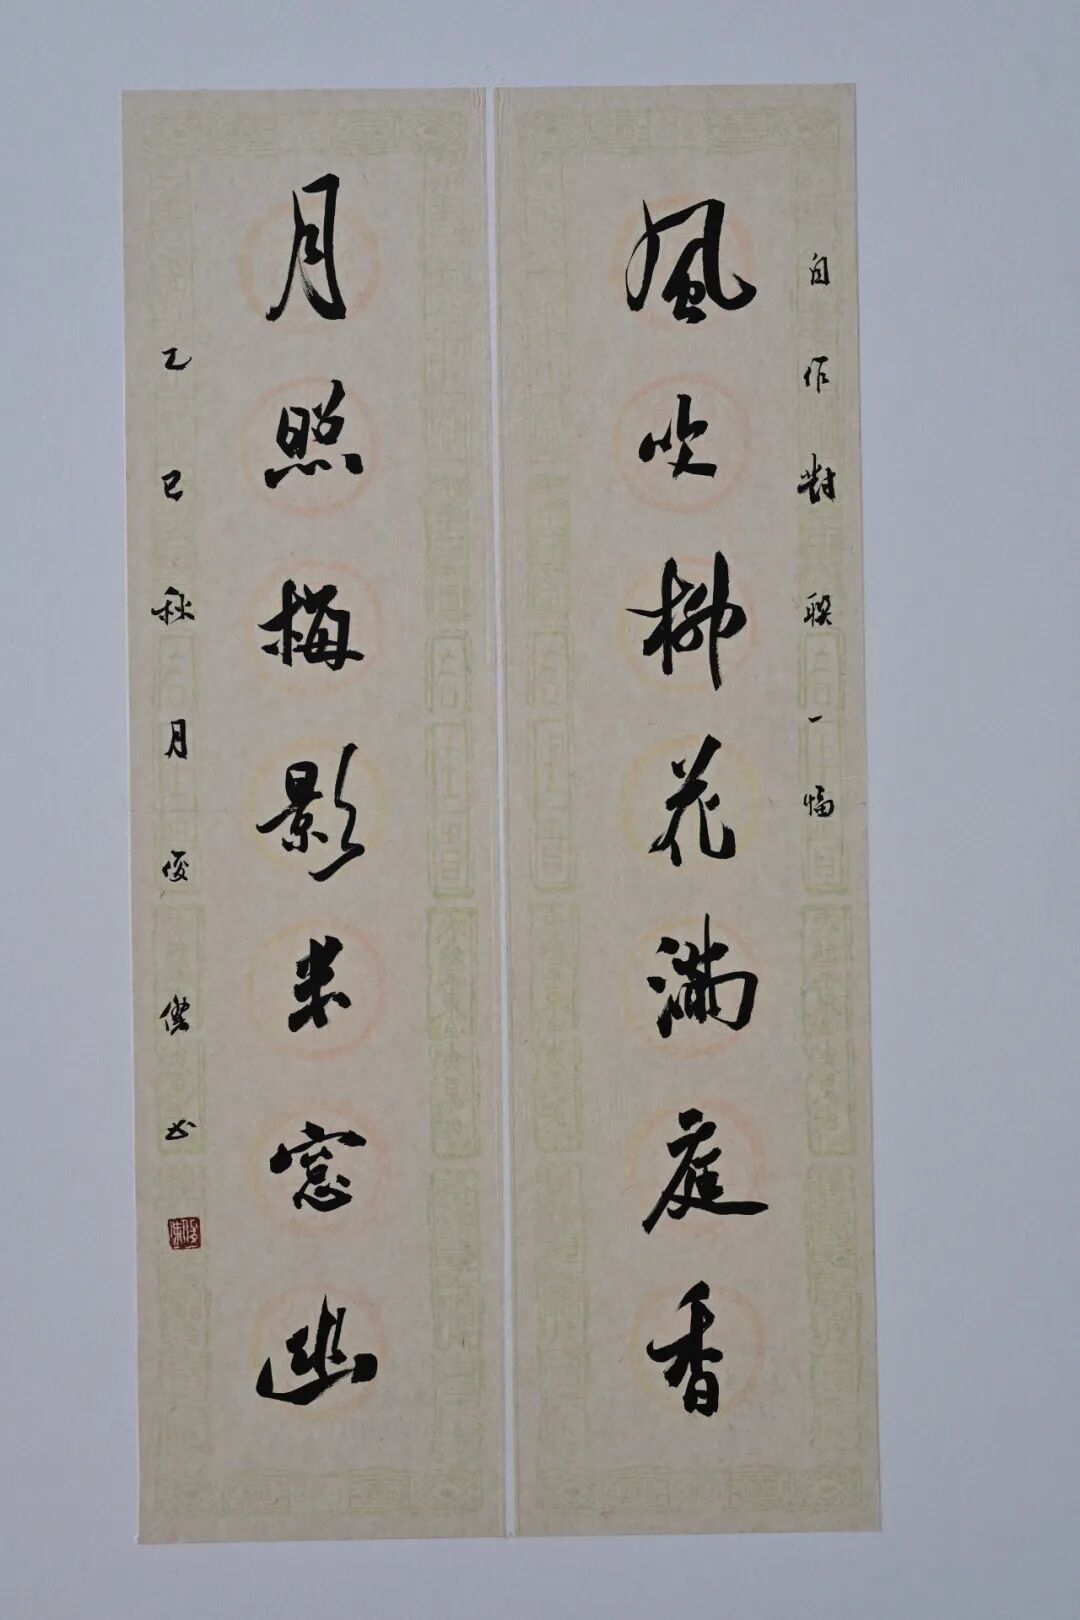 自作對聯一幅
風吹柳花滿庭香
月照梅影半窓幽
乙巳秋月俊傑书